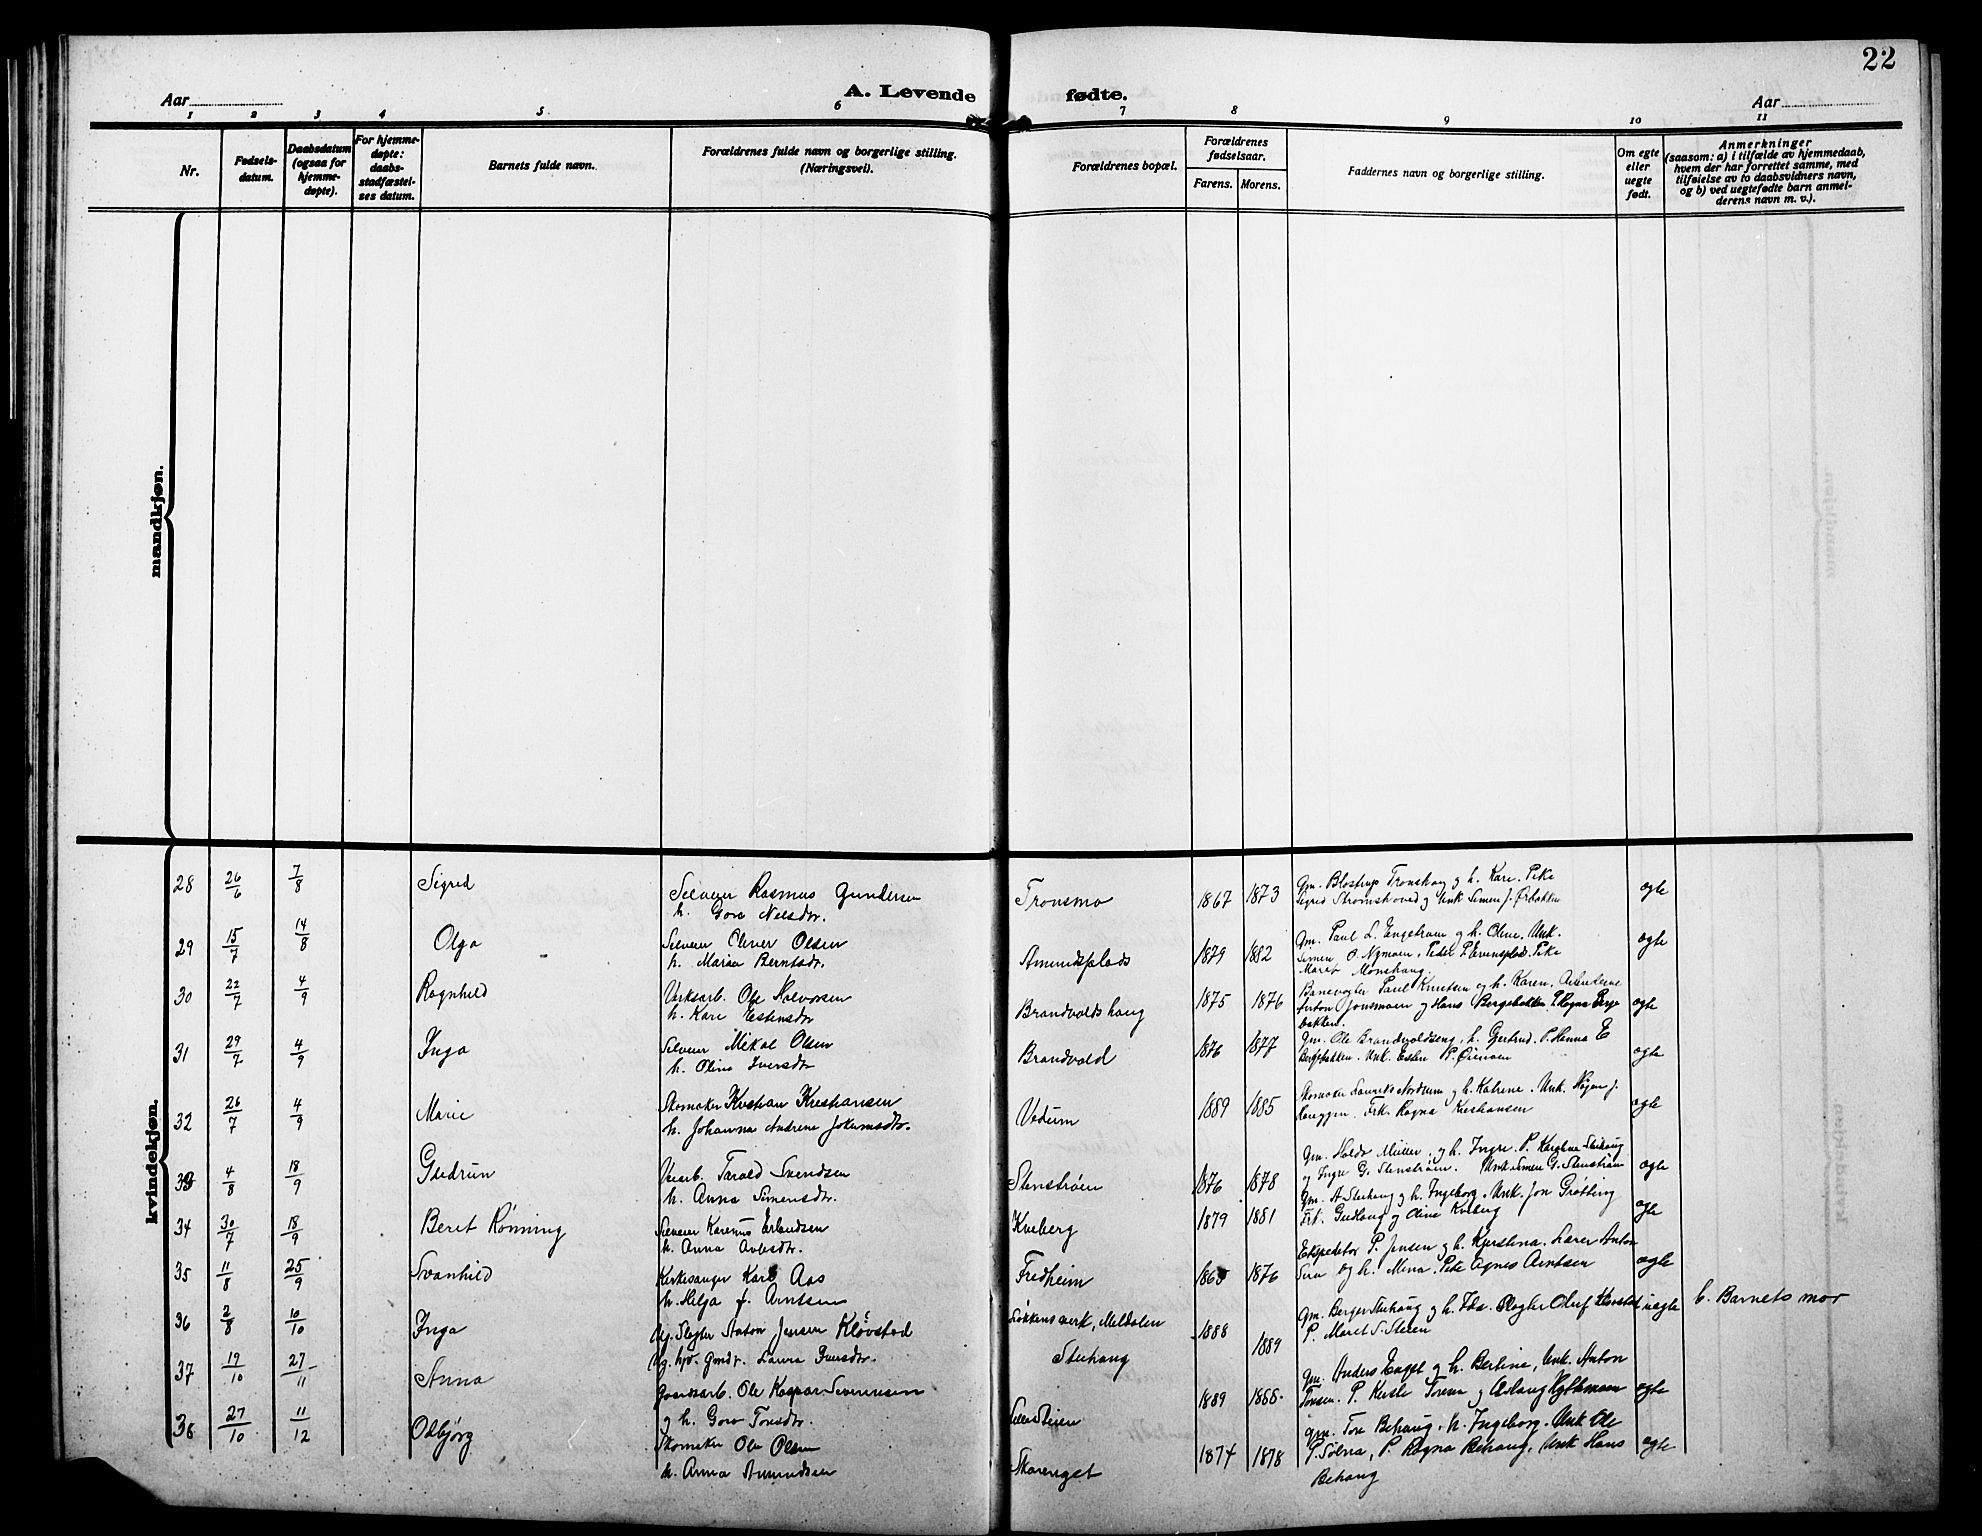 22
Aar
A. Levende fødte.
Aar
1 2 3 4 5. 6 7 8 9 10 11
Nr.
Fødsels-
datum.
Daabsdatum
(ogsaa for
hjemme-
døpte).
For hjemme-
døpte:
daabs-
stadfæstel-
ses datum.
Barnets fulde navn.
Forældrenes fulde navn og borgerlige stilling.
(Næringsvei).
Forældrenes bopæl.
Forældrenes
fødselsaar.
Farens. Morens.
Faddernes navn og borgerlige stilling.
Om egte
eller
uegte
født.
Anmerkninger
(saasom: a) i tilfælde av hjemmedaab,
hvem der har forrettet samme, med
tilføielse av to daabsvidners navn,
og b) ved uegtefødte barn anmel-
derens navn m. v.).
mandkjøn.
kvindekjøn.
28 26/6 7/8 Sigrid
Selveier Rasmus Gundersen
h. Goro Nilsdtr.
Tronsmo 1867 1873
Gm. Tronshaug og h. Kari. Pike
Sigrid og Unk Simen J.
egte
29 15/7 14/8 Olga
Selveier Elever Olsen
h. Maria Berntsdtr.
Amundsplads 1879 1882
Gm. Paul L. Engstrøm og h. Oline. Unk.
Simen O. Nymoen, Peder Pike
Maret Monshaug
egte
30 22/7 4/9 Ragnhild
Verksarb. Ole Halvorsen
h. Kari Estensdtr
Brandvoldshaug 1875 1876
Banevogter Paul Knutsen og h. Karen. Arbeiderne
Anton Jonsmoen og Hans Bergebakken P. Ragna Berge
bakken.
egte
31 29/7 4/9 Inga
Selveier Mikal Olsen
h. Oline Iversdtr
Brandvold 1876 1877
Gm. Ole Brandvoldseng, h. Gjertrud. P. Hanna E
Bergebakken. Unk. Esten P. Øiemoen
egte
32 26/7 4/9 Marie
Skomaker Kristian Kristiansen
h. Johanna Andrine Jokumsdtr.
Vedum 1889 1885
Skomaker Laurits Nordrum og h. Katrine. Unk. J.
Frk. Ragna Kristiansen
egte
33 4/8 18/9 Gudrun
Veiarb. Tarald Svendsen
h. Anna Simensdtr.
Stenstrøen 1876 1878
Gm. Müller, og h. Ingri. P. Karoline Steihaug
og Ingri G. Stenstrøen. Unk Simen G. Stenstrøen
egte
34 30/7 18/9 Beret Rønning
Selveier Karenus Erlandsen
h. Anna Avlesdtr.
Kveberg 1879 1881
Gm. A Steihaug og h. Ingeborg. Unk. Jon Grøtting
Frk. Gudlaug og Oline Kveberg
egte
35 11/8 25/9 Svanhild
Kirkesanger Karl Aas
h. Helga f. Arntsen
Fredheim 1876
Ekspeditør P. Jensen og h. Kjerstina. Lærer Anton
og h. Mina. Pike Agnes Arntsen
egte
36 2/8 10/10 Inga
Ug. Slagter Anton Jensen Kløvstad
Ug. Laura Iversdtr.
Løkkens verk, Meldalen
Steihaug
1888
1889
Gm. Berger Steihaug og h. Ida. Slagter Oluf
P. Maret S. Steien
uegte
b. Barnets mor
37 19/10 27/11 Anna
Gaardsarb. Ole Kaspar Severinsen
og h. Goro Toresdtr.
1889
Gm. Anders Enget og h. Bertine, Unk. Anton
P. Kirsti og Aslaug
egte
38 27/10 11/12 Odbjørg
Skomaker Ole Olsen
h. Anna Amundsen
Skarenget 1874 1878
Gm. Tore Behaug, h. Ingeborg. Unk Ole
P. Sølna, P. Ragna Behaug, Unk Hans
Behaug
egte